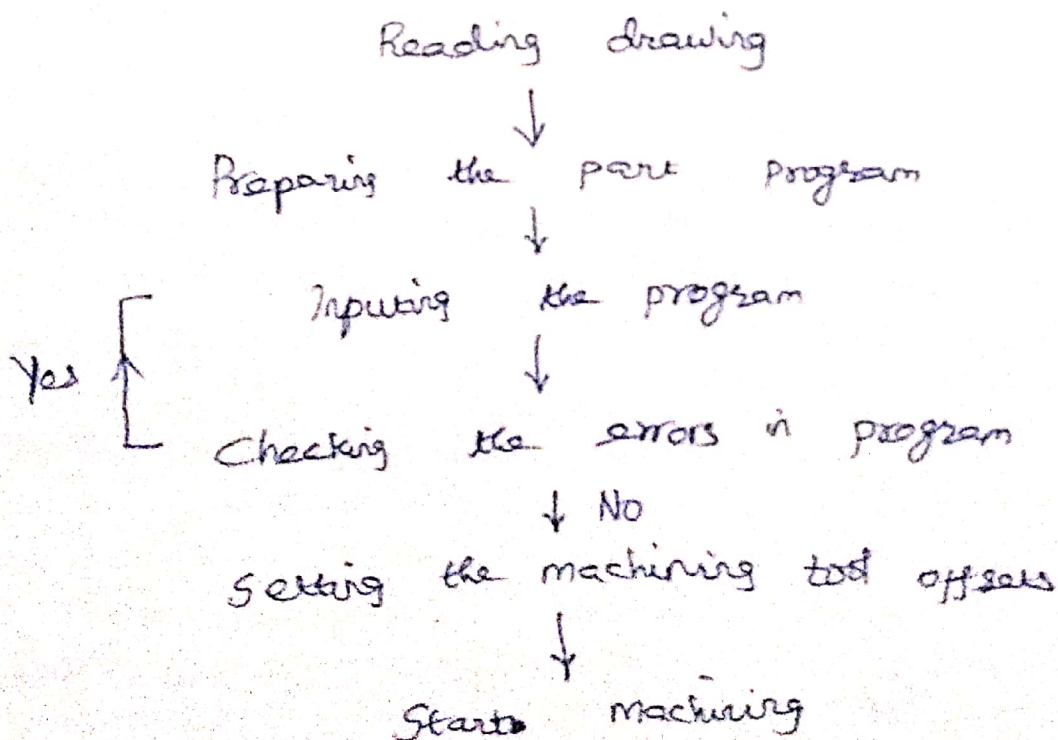 Reading drawing
Preparing the part program
Inputing the program
Yes
Checking the errors in program
No
Setting the machining tool offsets
Start machining